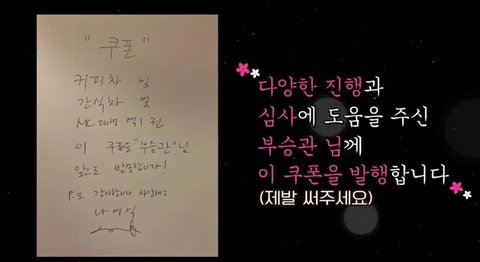 "쿠폰"
커피차 및
간식차 및
MC 대행 역 1권
이 쿠폰을 "부승관"님
앞으로 발행합니다!
P.S. 감사합니다. 사랑해요
나영석
다양한 진행과
심사에 도움을 주신
부승관 님께
이 쿠폰을 발행합니다
(제발 써주세요)